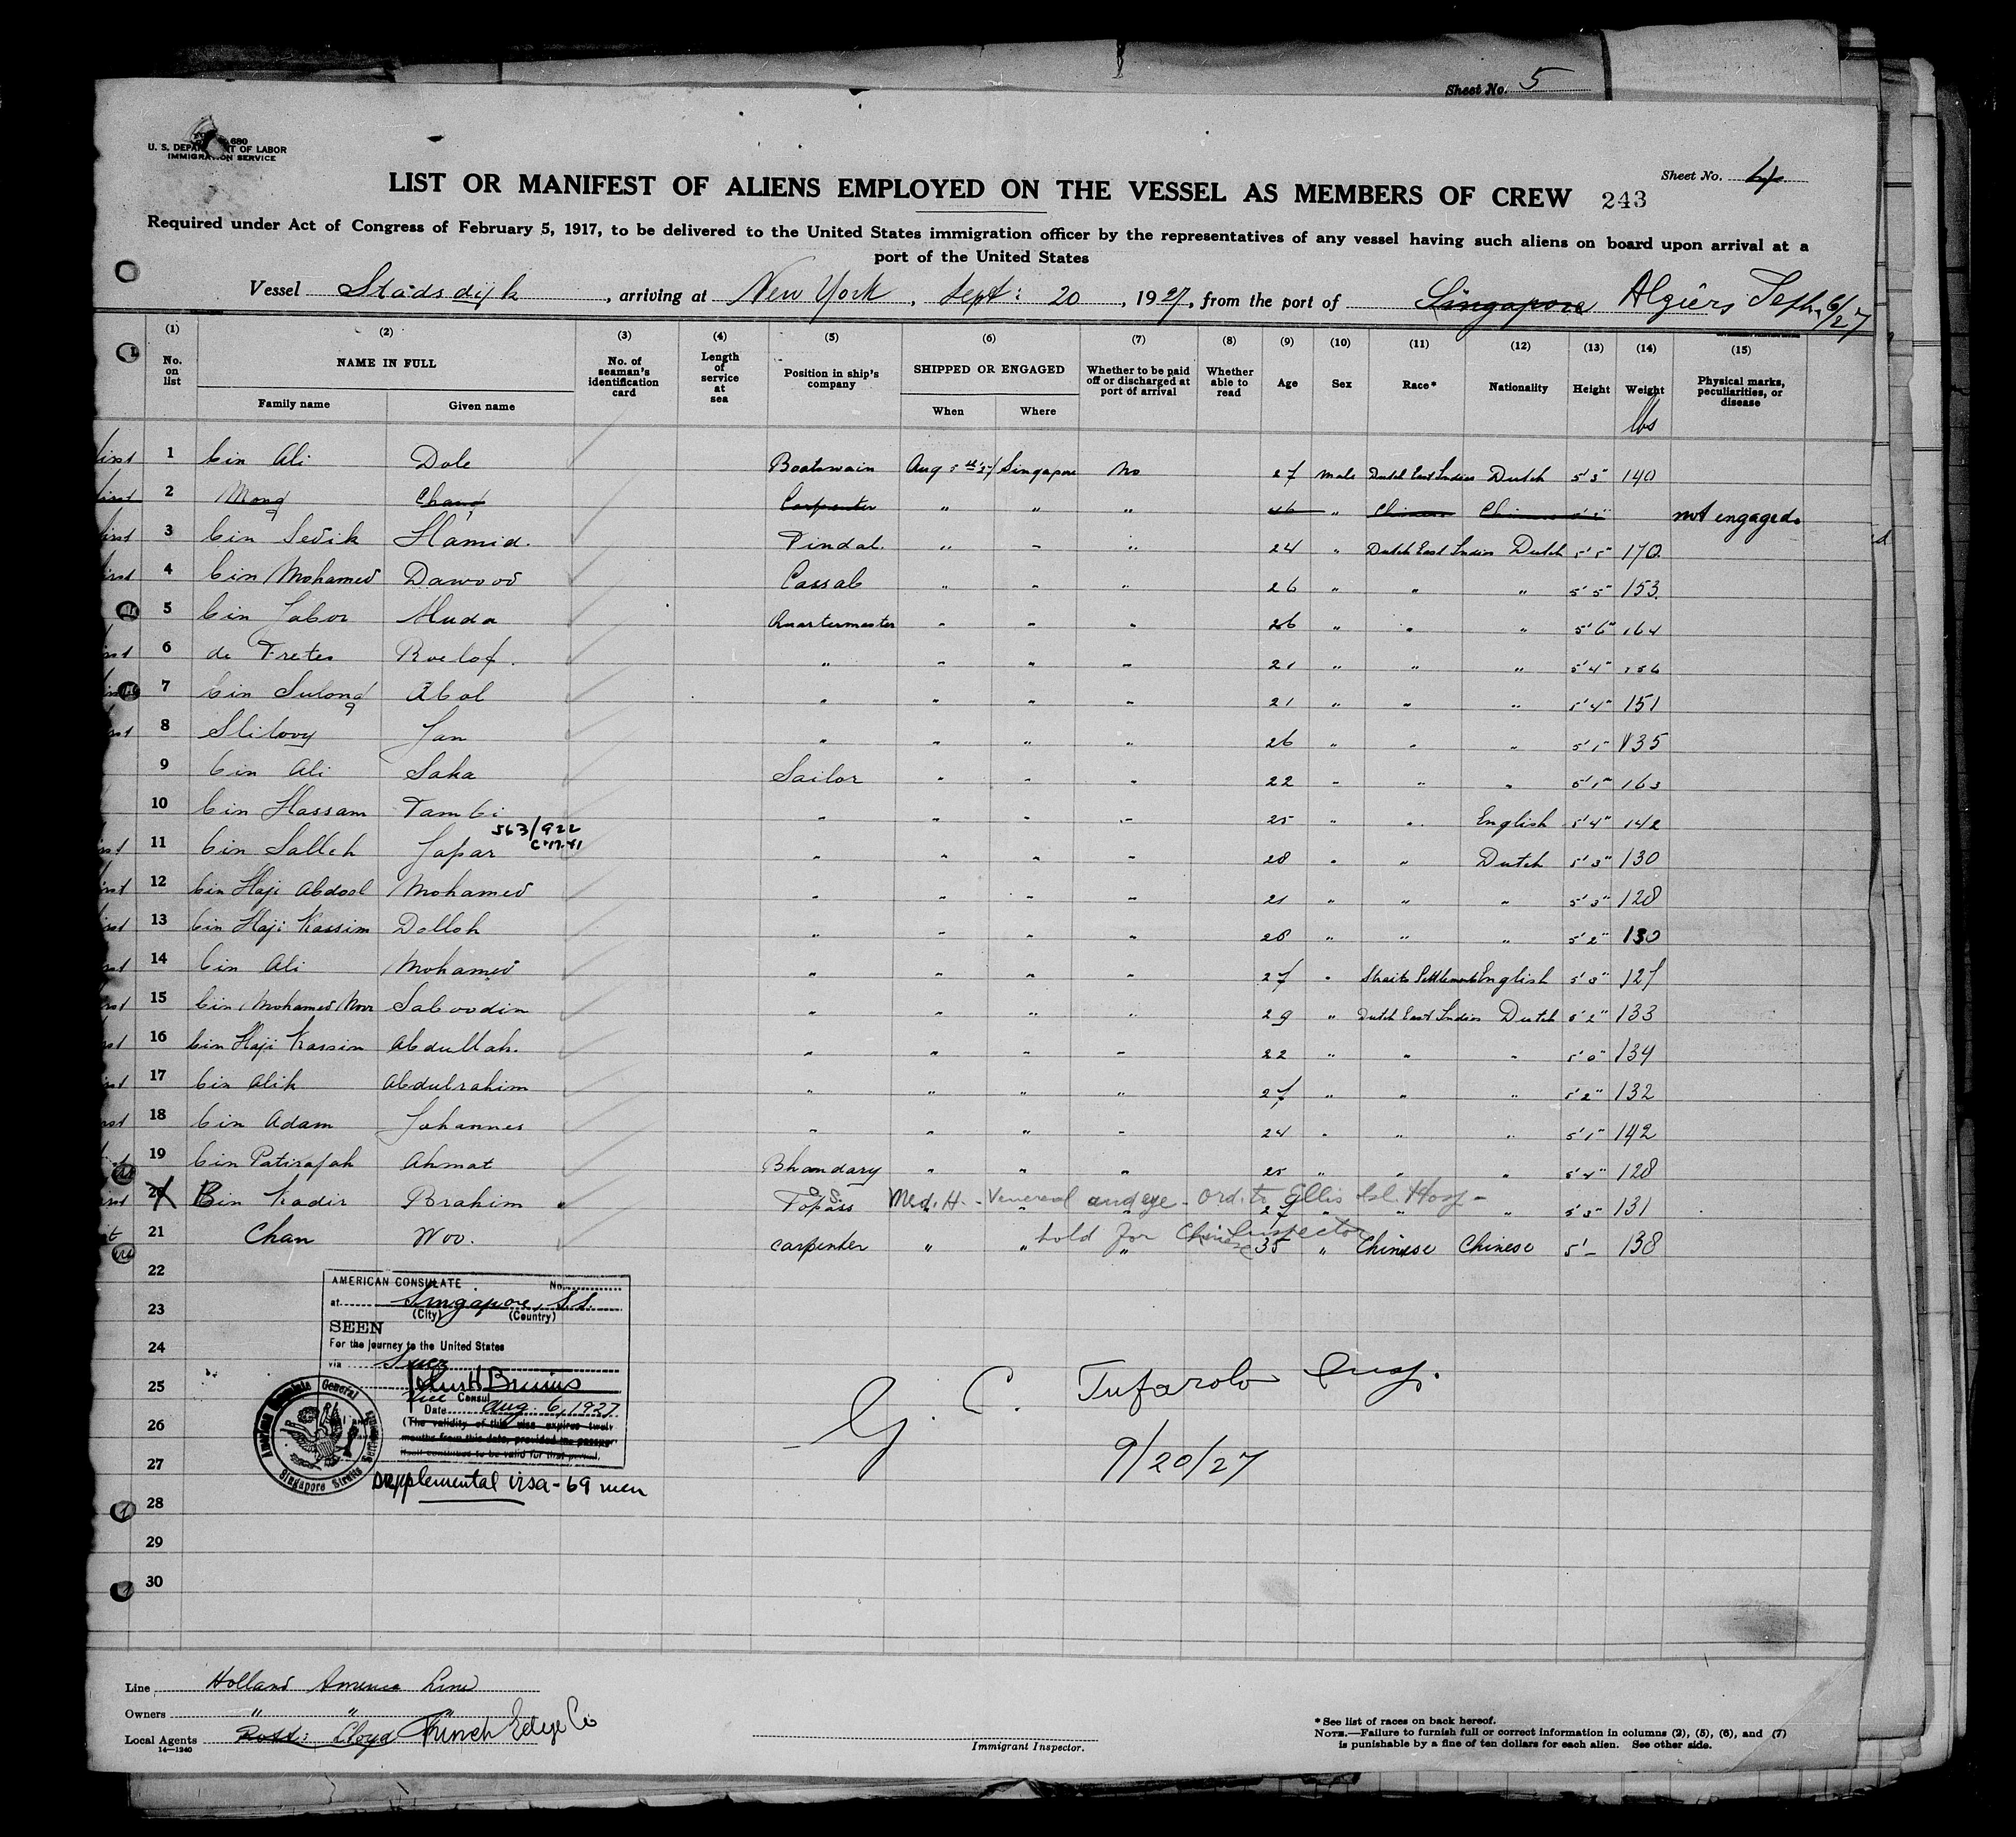 Sheet No. 5
680
U. S. DEPARTMENT OF LABOR
IMMIGRATION SERVICE
Sheet No. 4
LIST OR MANIFEST OF ALIENS EMPLOYED ON THE VESSEL AS MEMBERS OF CREW 243
Required under Act of Congress of February 5, 1917, to be delivered to the United States immigration officer by the representatives of any vessel having such aliens on board upon arrival at a
port of the United States
Vessel Stadsdijk, arriving at New York, Sept: 20, 1927, from the port of Singapore Algiers Sept. 6/27
(1) (2) (3) (4) (5) (6) (7) (8) (9) (10) (11) (12) (13) (14) (15)
No. on list NAME IN FULL No. of seaman's identification card Length of service at sea Position in ship's company SHIPPED OR ENGAGED Whether to be paid off or discharged at port of arrival Whether able to read Age Sex Race* Nationality Height Weight Physical marks, peculiarities, or disease
Family name Given name When Where lbs
1 bin Ali Dole Boatswain Aug 5th 27 Singapore No 27 Male Dutch East Indies Dutch 5'3" 140
2 Mong Chang Carpenter " " " 46 " Chinese Chinese not engaged.
3 bin Sedik Hamid. Tindal " " " 24 " Dutch East Indies Dutch 5'5" 170
4 bin Mohamed Dawood Cassab " " " 26 " " " 5'5" 153
5 bin Jabor Muda Quartermaster " " " 26 " " " 5'6" 164
6 de Fretes Roelof. " " " " 21 " " " 5'4" 156
7 bin Sulong Abol " " " " 21 " " " 5'4" 151
8 Slilooy Jan " " " " 26 " " " 5'1" 135
9 bin Ali Saka Sailor " " " 22 " " " 5'1" 163
10 bin Hassam Tambi " " " " 25 " " English 5'4" 142
563/922
11 bin Salleh Japar " " " " 28 " " Dutch 5'3" 130
12 bin Haji Abdool Mohamed " " " " 21 " " " 5'3" 128
13 bin Haji Kassim Dolloh " " " " 28 " " " 5'2" 130
14 bin Ali Mohamed " " " " 27 " Straits Settlements English 5'3" 127
15 bin Mohamed Noor Saboodin " " " " 29 " Dutch East Indies Dutch 5'2" 133
16 bin Haji Kassim Abdullah. " " " " 22 " " " 5'0" 134
17 bin Alik Abdulrahim " " " " 27 " " " 5'2" 132
18 bin Adam Johannes " " " " 24 " " " 5'1" 142
19 bin Patirajah Ahmat Bhandary " " " 25 " " " 5'4" 128
20 Bin Kadir Brahim Topass O.S. Med. H. - Venereal and eye - ord. to Ellis Isl. Hosp - 27 " " " 5'3" 131
hold for Chinese Inspector
21 Chan Woo. carpenter " " " 35 " Chinese Chinese 5'- 138
22
23
24
25
26
27
28
29
30
AMERICAN CONSULATE No.
at Singapore, S.S.
(City) (Country)
SEEN
For the journey to the United States
via Suez
Vice Consul
Date Aug. 6, 1927
(The validity of this visa expires twelve
months from this date, provided the passport
itself continues to be valid for that period.
American Consulate General
Singapore Straits Settlements
Supplemental visa - 69 men
G. C. Tufarolo Insp.
9/20/27
Line Holland America Line
Owners " " "
Local Agents Rott: Lloyd Funch Edye Co
14-1240
Immigrant Inspector.
*See list of races on back hereof.
NOTE.—Failure to furnish full or correct information in columns (2), (5), (6), and (7)
is punishable by a fine of ten dollars for each alien. See other side.